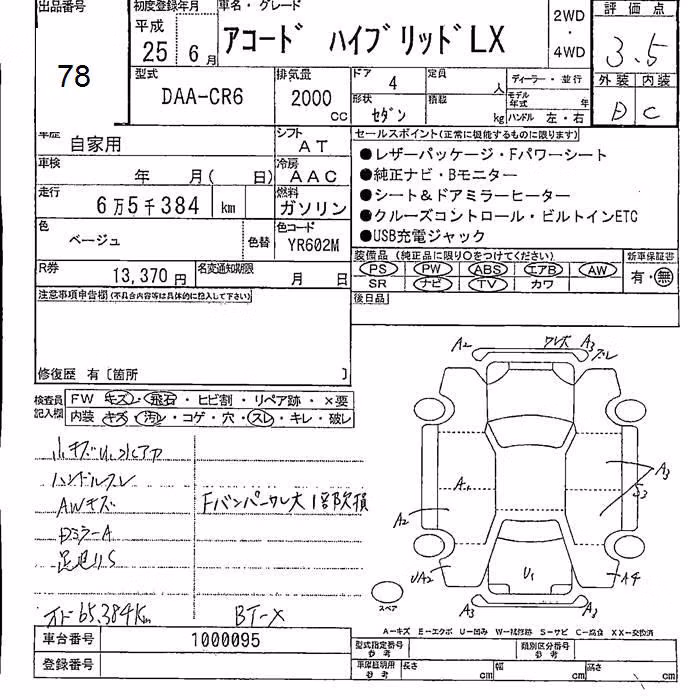 出品番号
78
初度登録年月
平成
25 年 6 月
車名・グレード
アコード ハイブリッドLX
2WD
・
4WD
評価点
3.5
外装 内装
D C
型式
DAA-CR6
排気量
2000 CC
ドア 4
定員 人
形状 セダン
積載 kg
ディーラー・並行
モデル年式 年
ハンドル 左・右
車歴 自家用
シフト AT
車検 年 月( 日)
冷房 AAC
走行 6万5千384 km
燃料 ガソリン
色 ベージュ
色替
色コード YR602M
R券 13,370 円
名変通知期限 月 日
セールスポイント(正常に機能するものに限ります)
●レザーパッケージ・Fパワーシート
●純正ナビ・Bモニター
●シート&ドアミラーヒーター
●クルーズコントロール・ビルトインETC
●USB充電ジャック
装備品 (純正品に限り○をつけてください)
PS PW ABS エアB AW
SR ナビ TV カワ
新車保証書
有・無
後日品
注意事項申告欄(不具合内容等は具体的に記入して下さい)
修復歴 有〔箇所 〕
検査員記入欄
FW キズ・飛石・ヒビ割・リペア跡・×要
内装 キズ・汚レ・コゲ・穴・スレ・キレ・破レ
ハンドルスレ
AWキズ
Fバンパーワレ大1部欠損
DミラーA
足廻りS
オド65,384Km
BT-X
A2 ワレズ A3 ズレ
A1
A2
A3
S3
UA2
U1
A4
A3 A3
スペア
A-キズ E-エクボ U-凹み W-補修跡 S-サビ C-腐食 XX-交換済
車台番号 1000095
登録番号
型式指定番号 参考
類別区分番号 参考
車庫証明用 参考
長さ cm
幅 cm
高さ cm